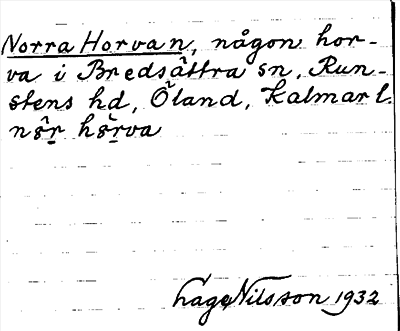 Norra Horvan, någon hor-
va i Bredsättra sn, Run-
stens hd, Öland, Kalmar l.
Nilsson 1932